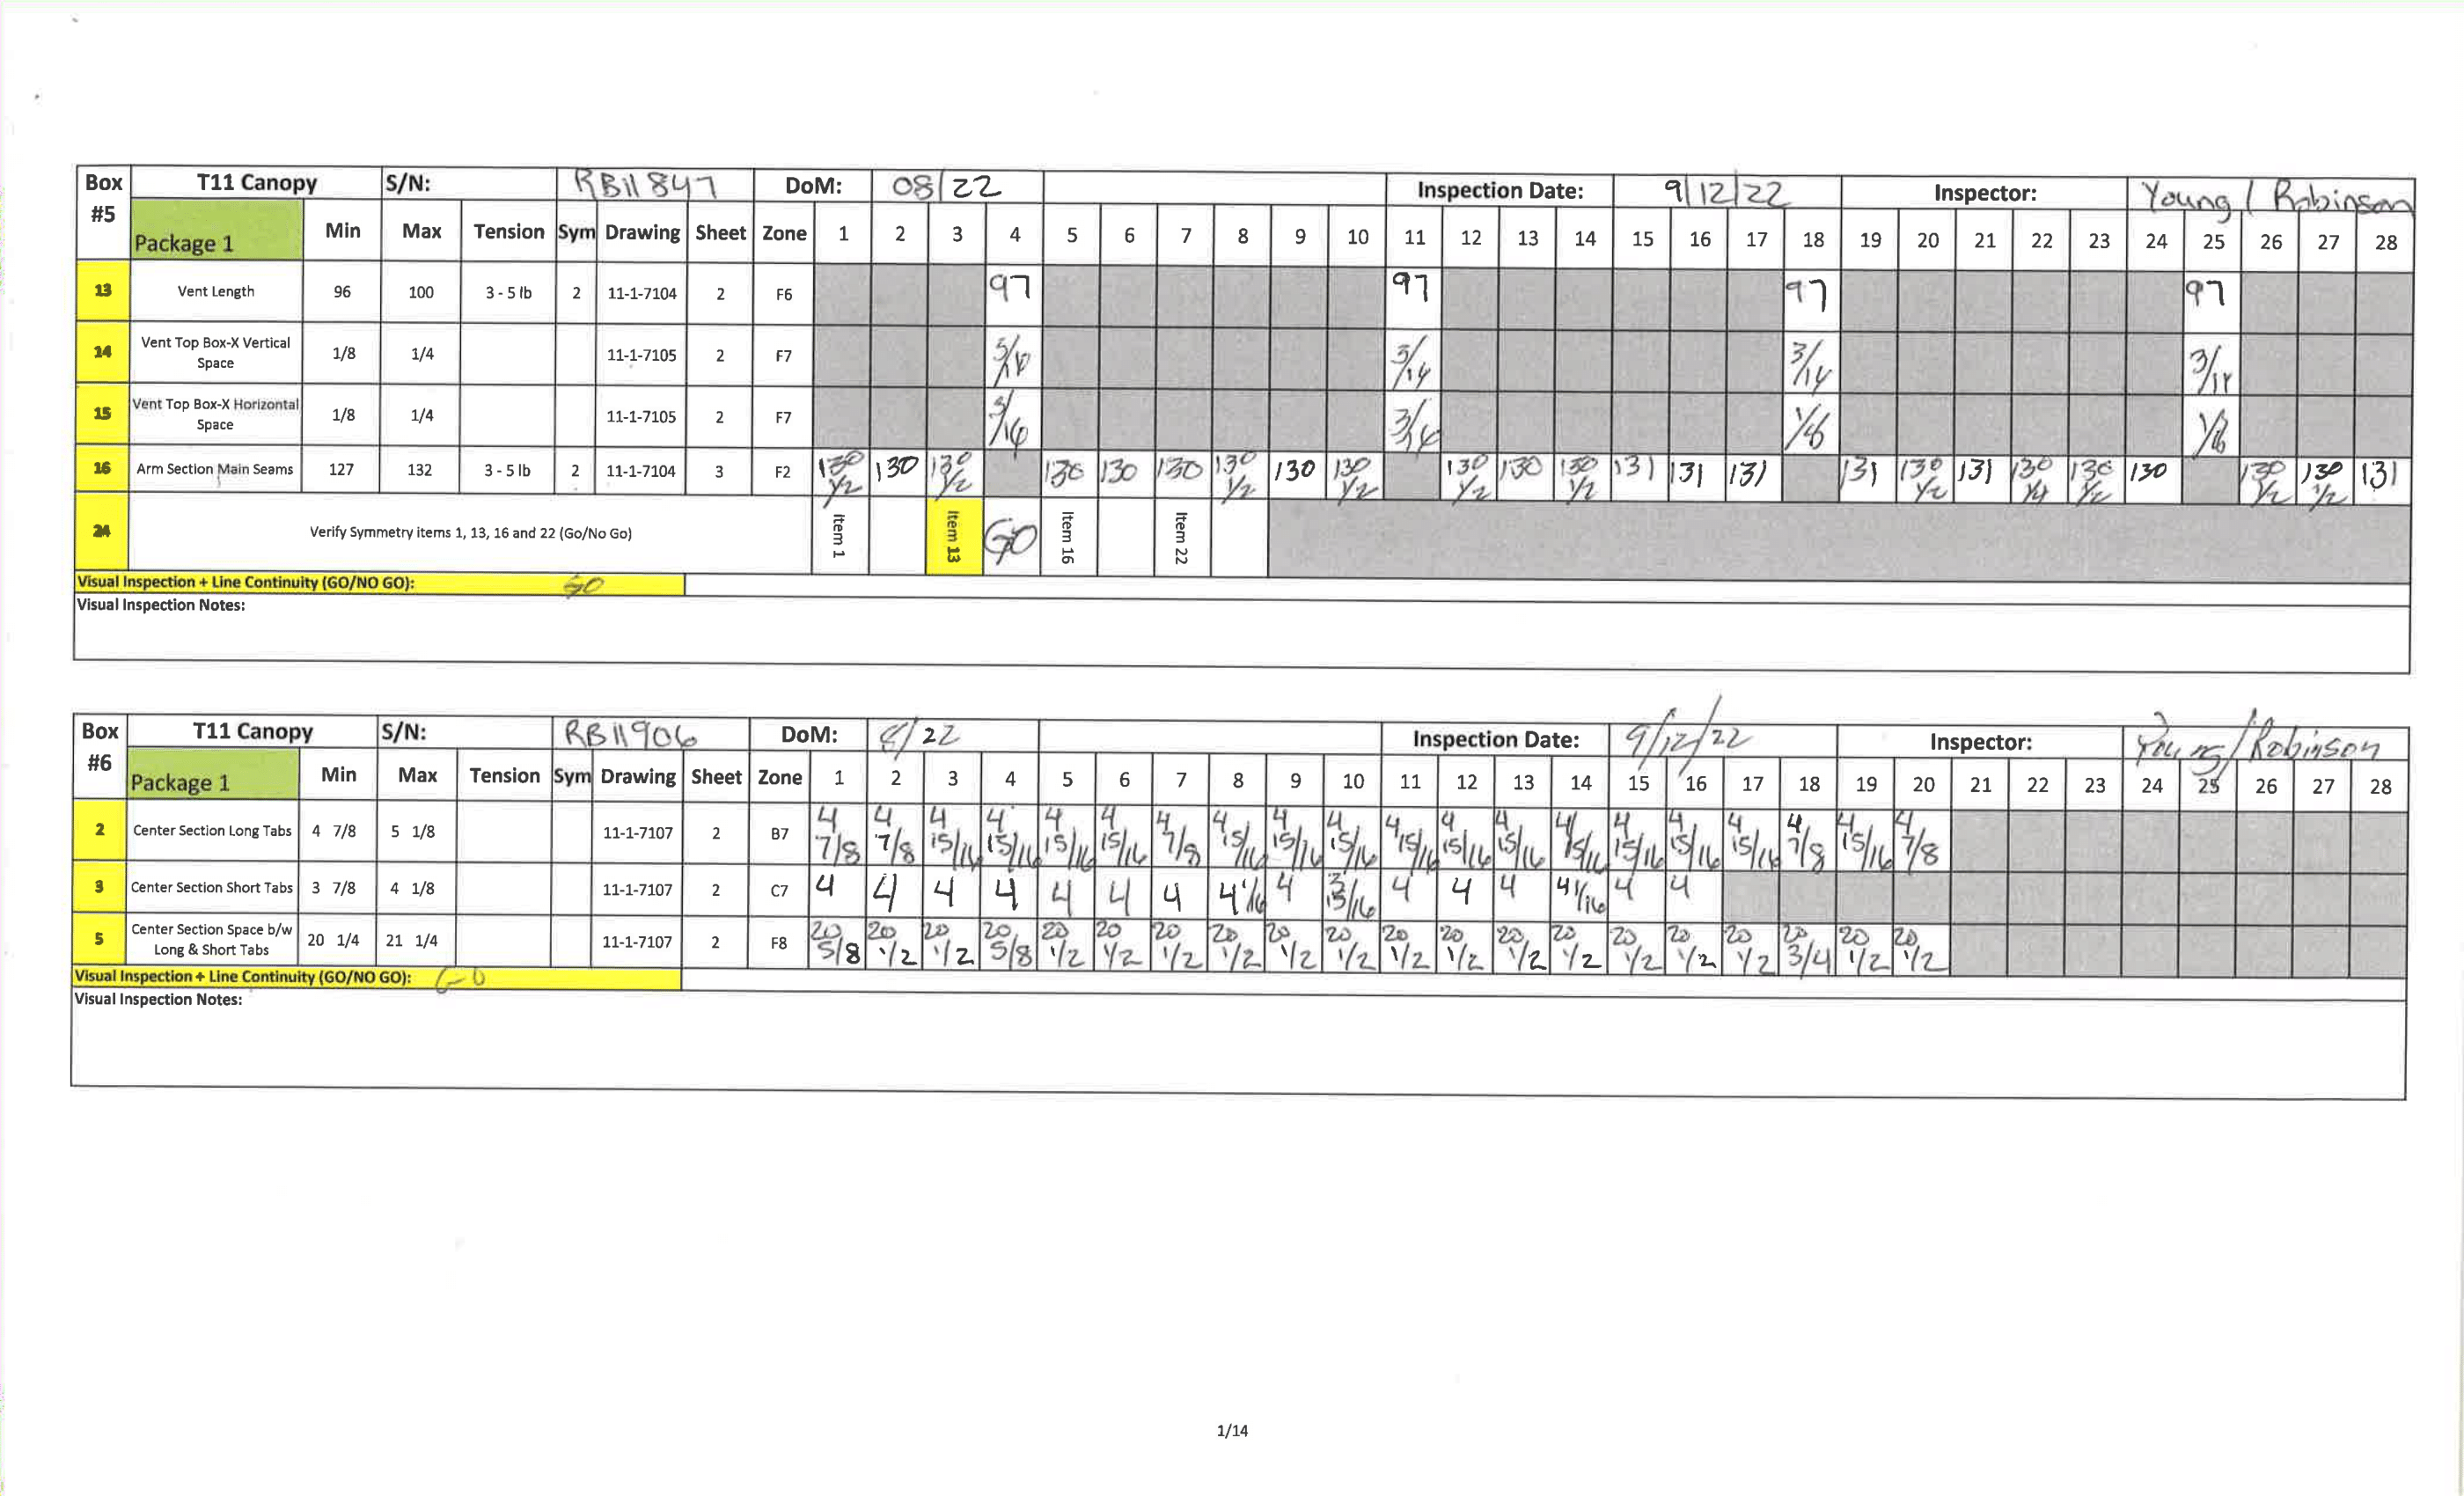 Box #5 T11 Canopy S/N: RB11847 DoM: 08/22 Inspection Date: 9/12/22 Inspector: Young / Robinson
Package 1 Min Max Tension Sym Drawing Sheet Zone 1 2 3 4 5 6 7 8 9 10 11 12 13 14 15 16 17 18 19 20 21 22 23 24 25 26 27 28
13 Vent Length 96 100 3 - 5 lb 2 11-1-7104 2 F6 97 97 97 97
14 Vent Top Box-X Vertical Space 1/8 1/4 11-1-7105 2 F7 3/16 3/16
15 Vent Top Box-X Horizontal Space 1/8 1/4 11-1-7105 2 F7 3/16 3/16
16 Arm Section Main Seams 127 132 3 - 5 lb 2 11-1-7104 3 F2 130 1/2 130 130 1/2 130 130 130 130 1/2 130 130 1/2 130 1/2 130 130 1/2 131 131 131 131 130 1/2 131 130 1/4 130 1/2 130 130 1/2 130 1/2 131
24 Verify Symmetry items 1, 13, 16 and 22 (Go/No Go) Item 1 Item 13 GO Item 16 Item 22
Visual Inspection + Line Continuity (GO/NO GO): GO
Visual Inspection Notes:
Box #6 T11 Canopy S/N: RB11906 DoM: 8/22 Inspection Date: 9/12/22 Inspector: Young/Robinson
Package 1 Min Max Tension Sym Drawing Sheet Zone 1 2 3 4 5 6 7 8 9 10 11 12 13 14 15 16 17 18 19 20 21 22 23 24 25 26 27 28
2 Center Section Long Tabs 4 7/8 5 1/8 11-1-7107 2 B7 4 7/8 4 7/8 4 15/16 4 15/16 4 15/16 4 15/16 4 7/8 4 15/16 4 15/16 4 15/16 4 15/16 4 15/16 4 15/16 4 15/16 4 15/16 4 15/16 4 15/16 4 7/8 4 15/16 4 7/8
3 Center Section Short Tabs 3 7/8 4 1/8 11-1-7107 2 C7 4 4 4 4 4 4 4 4 1/16 4 3 15/16 4 4 4 4 1/16 4 4
5 Center Section Space b/w Long & Short Tabs 20 1/4 21 1/4 11-1-7107 2 F8 20 5/8 20 1/2 20 1/2 20 5/8 20 1/2 20 1/2 20 1/2 20 1/2 20 1/2 20 1/2 20 1/2 20 1/2 20 1/2 20 1/2 20 1/2 20 1/2 20 1/2 20 3/4 20 1/2 20 1/2
Visual Inspection + Line Continuity (GO/NO GO): GO
Visual Inspection Notes:
1/14